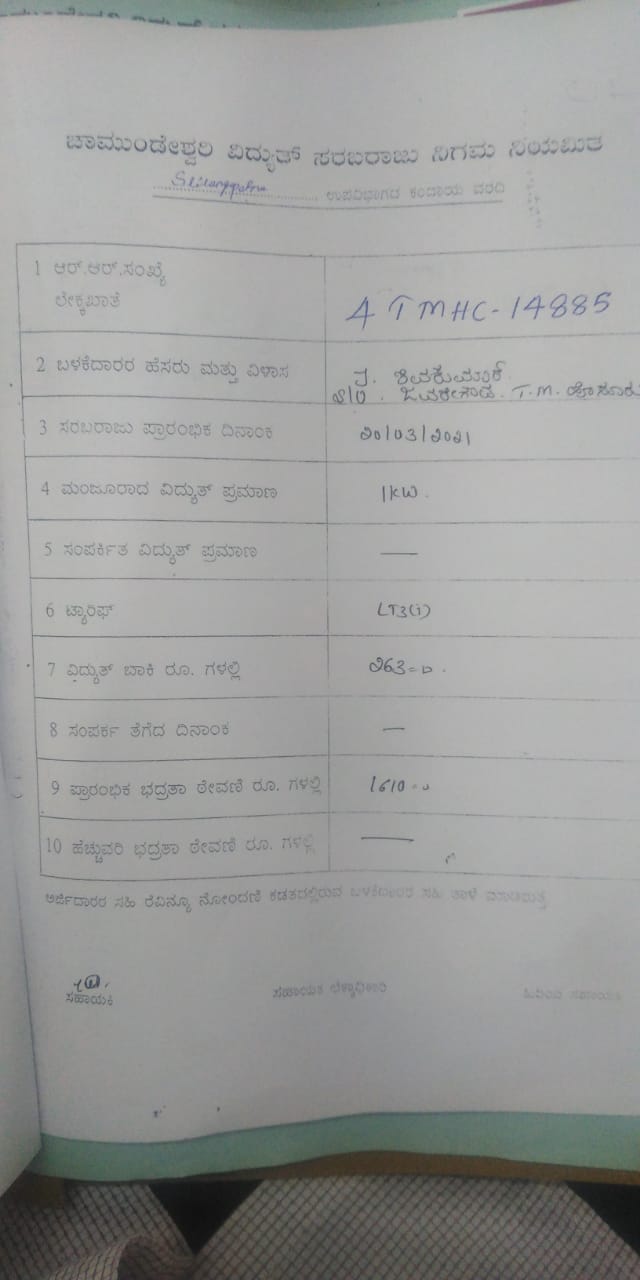 ಚಾಮುಂಡೇಶ್ವರಿ ವಿದ್ಯುತ್ ಸರಬರಾಜು ನಿಗಮ ನಿಯಮಿತ
ಉಪವಿಭಾಗದ ಕಂದಾಯ ವರದಿ
1 ಆರ್.ಆರ್.ಸಂಖ್ಯೆ
ಲೇಕ್ಕಖಾತೆ
4 TMHC-14885
2 ಬಳಕೆದಾರರ ಹೆಸರು ಮತ್ತು ವಿಳಾಸ
ಶಿವಕುಮಾರ್
S/o. ಜವರೇಗೌಡ. T.M. ಹೊಸೂರು
3 ಸರಬರಾಜು ಪ್ರಾರಂಭಿಕ ದಿನಾಂಕ 20/03/2021
4 ಮಂಜೂರಾದ ವಿದ್ಯುತ್ ಪ್ರಮಾಣ 1KW.
5 ಸಂಪರ್ಕಿತ ವಿದ್ಯುತ್ ಪ್ರಮಾಣ —
6 ಟ್ಯಾರಿಫ್ LT3(i)
7 ವಿದ್ಯುತ್ ಬಾಕಿ ರೂ. ಗಳಲ್ಲಿ 263=0.
8 ಸಂಪರ್ಕ ತೆಗೆದ ದಿನಾಂಕ —
9 ಪ್ರಾರಂಭಿಕ ಭದ್ರತಾ ಠೇವಣಿ ರೂ. ಗಳಲ್ಲಿ 1610=0
10 ಹೆಚ್ಚುವರಿ ಭದ್ರತಾ ಠೇವಣಿ ರೂ. ಗಳಲ್ಲಿ —
ಅರ್ಜಿದಾರರ ಸಹಿ ರೆವಿನ್ಯೂ ನೋಂದಣಿ ಕಡತದಲ್ಲಿರುವ ಬಳಕೆದಾರರ ಸಹಿ ತಾಳೆ
ಸಹಾಯಕಿ ಸಹಾಯಕ ಲೆಕ್ಕಾಧಿಕಾರಿ ಹಿರಿಯ ಸಹಾಯಕ